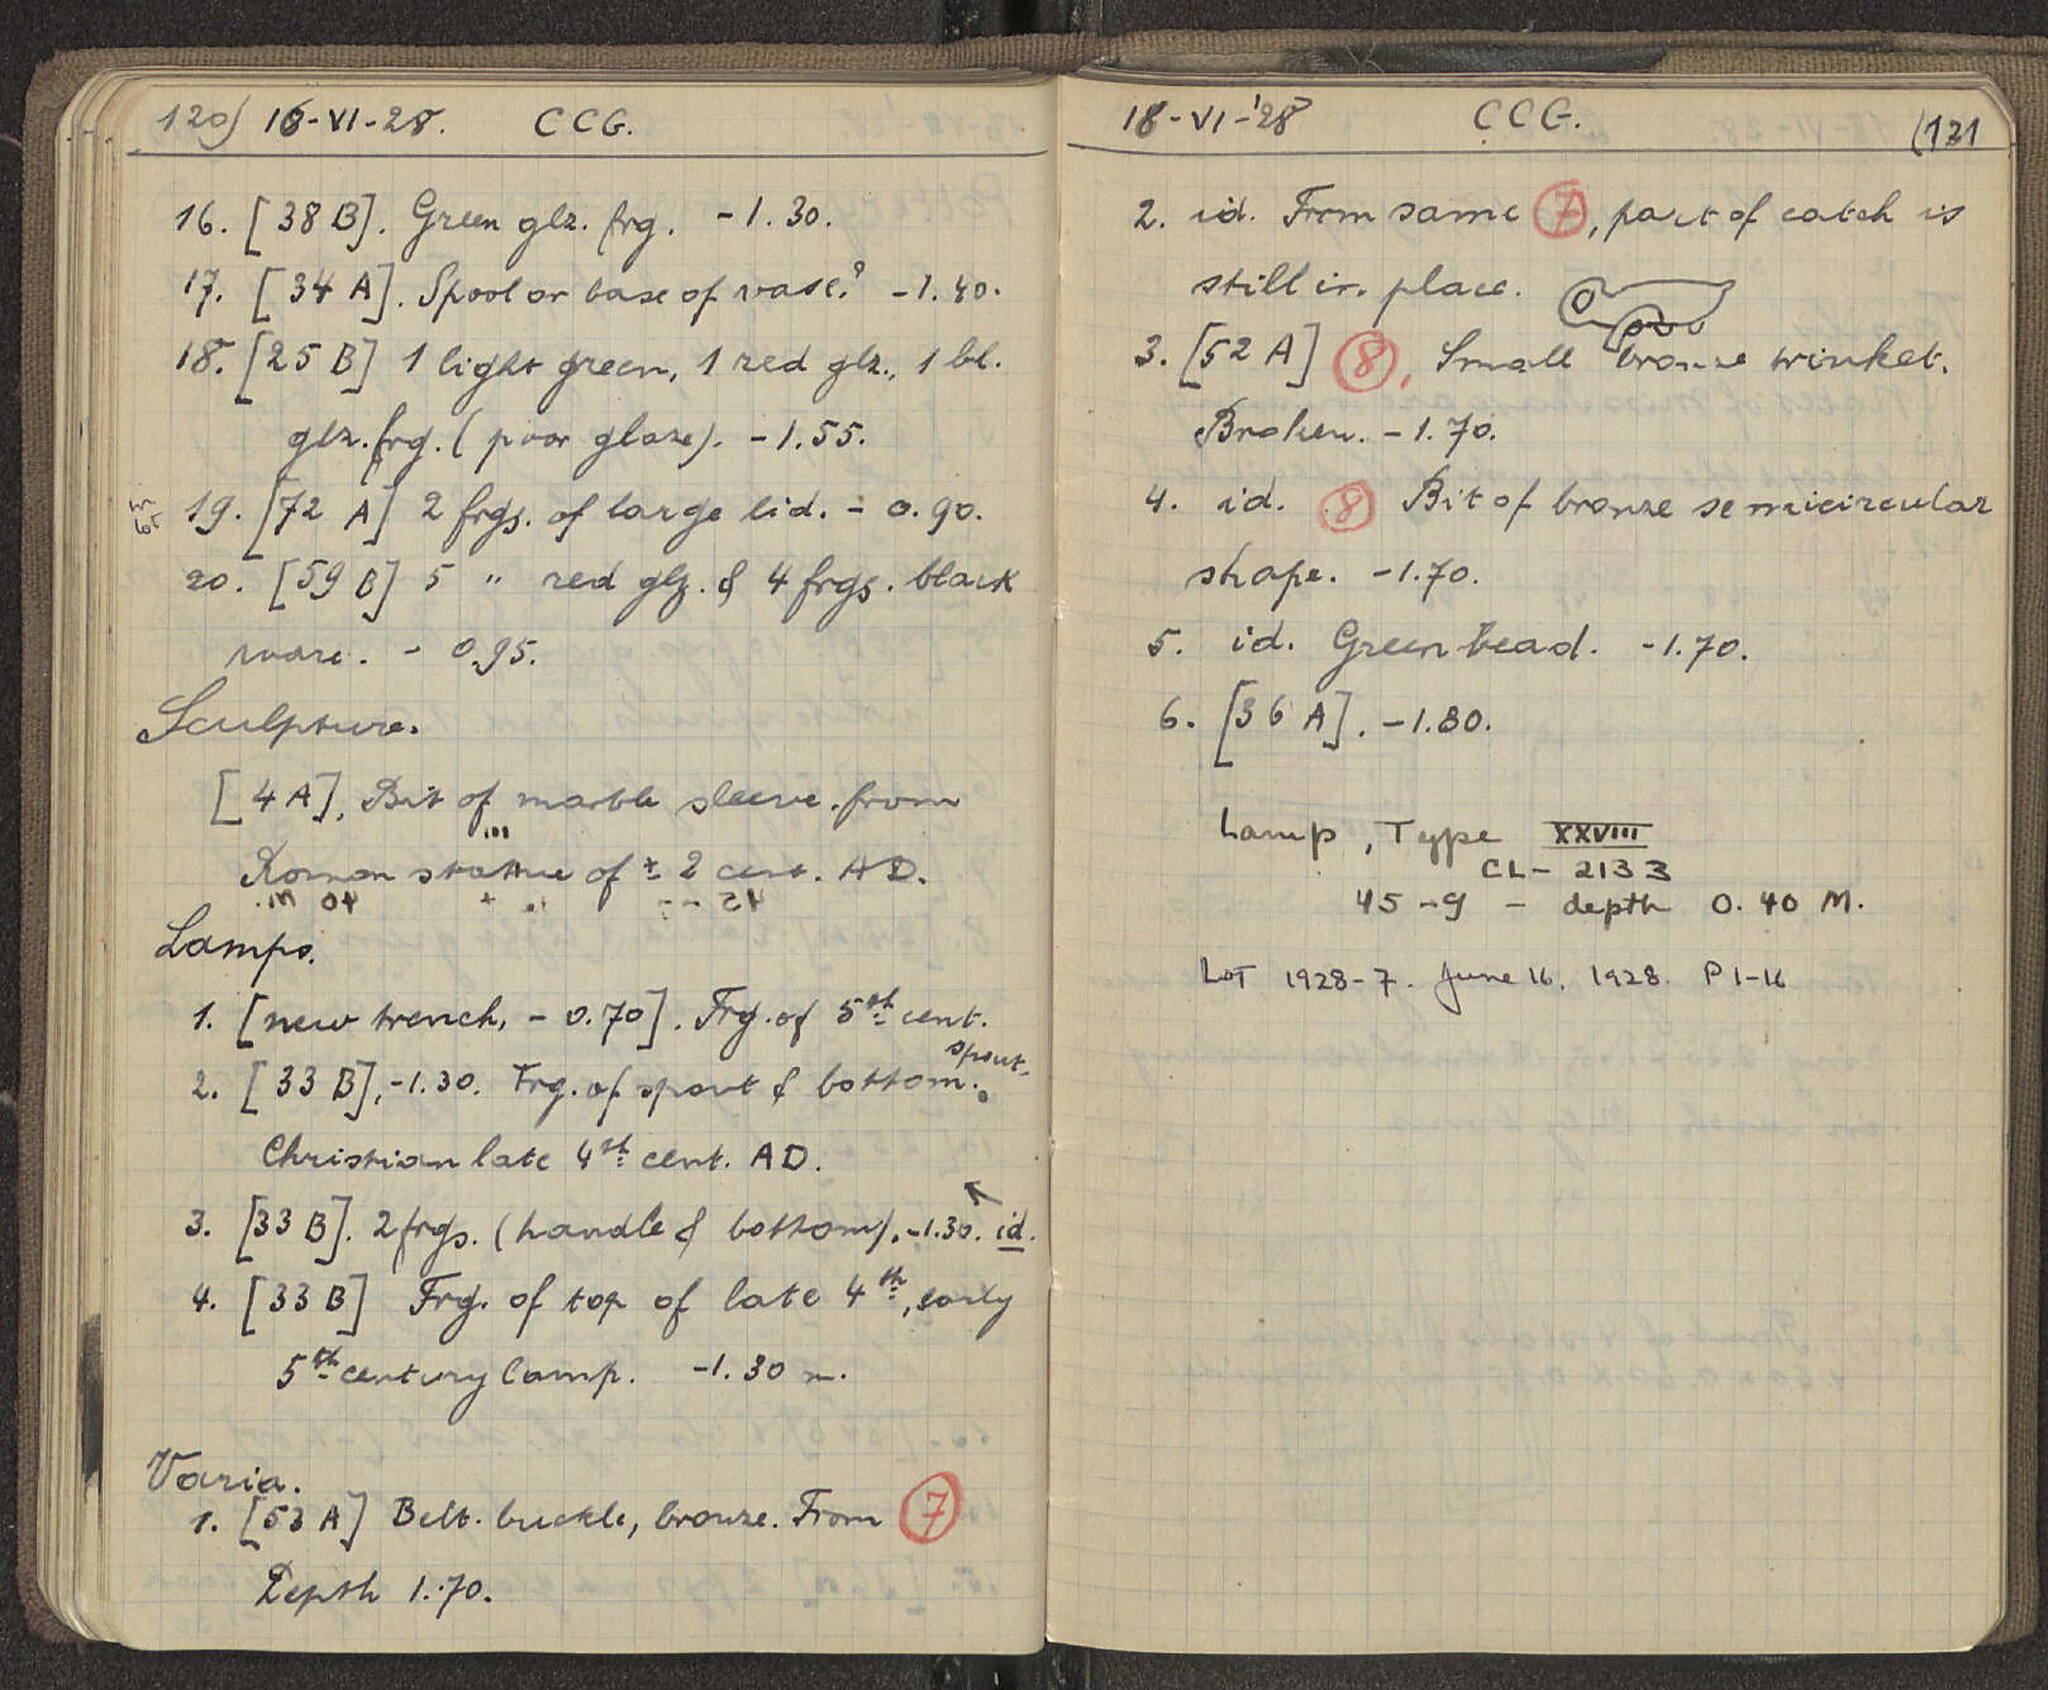 120) 16-VI-28. CCG.
16. [38 B]. Green glz. frg. -1.30.
17. [34 A]. Spool or base of vase? -1.40.
18. [25 B] 1 light green, 1 red glz., 1 bl.
glz. frg. (poor glaze). -1.55.
in lot
19. [72 A] 2 frgs. of large lid. - 0.90.
20. [59 B] 5 " red glz. & 4 frgs. black
ware. - 0.95.
Sculpture.
[4 A]. Bit of marble sleeve from
Roman statue of ± 2 cent. AD.
Lamps.
1. [new trench, - 0.70]. Frg. of 5th cent.
spout.
2. [33 B], -1.30. Frg. of spout & bottom.
Christian late 4th cent. AD.
3. [33 B]. 2 frgs. (handle & bottom). -1.30. id.
4. [33 B] Frg. of top of late 4th, early
5th century lamp. -1.30 m.
Varia.
1. [53 A] Belt. buckle, bronze. From 7
Depth 1.70.
18-VI-'28 CCG. (121
2. id. From same 7, part of catch is
still in place.
3. [52 A] 8, Small bronze trinket.
Broken. -1.70.
4. id. 8 Bit of bronze semicircular
shape. -1.70.
5. id. Green bead. -1.70.
6. [36 A]. -1.80.
Lamp, Type XXVIII
CL- 2133
45-9 - depth 0.40 M.
LOT 1928-7. June 16, 1928. P 1-16